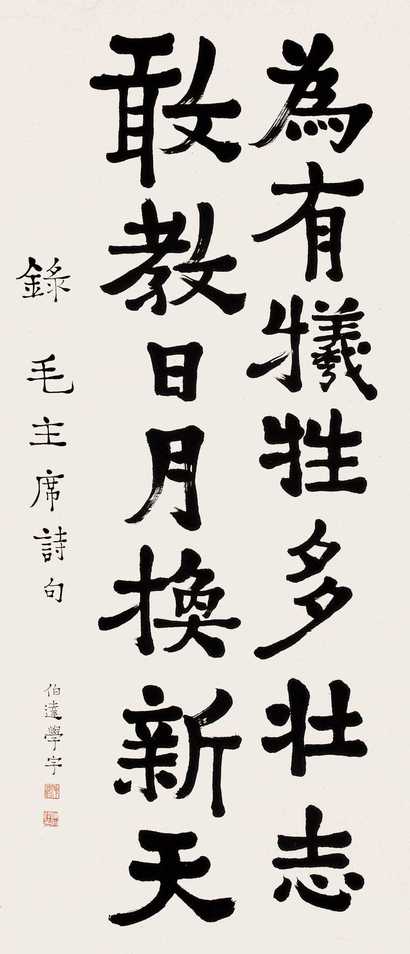 為有犧牲多壯志
敢教日月換新天
錄毛主席詩句
伯達學字